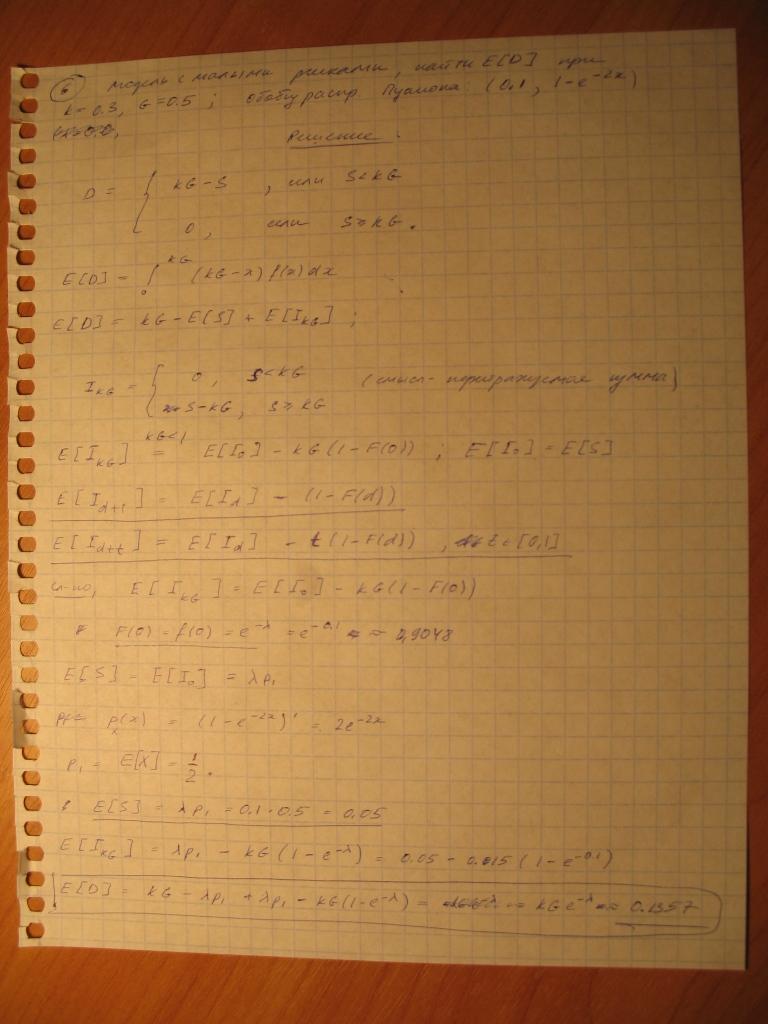 6 модель с малыми рисками, найти E[D] при
k=0.3, G=0.5; обобщ распр. Пуассона: (0,1, 1-e^{-2x})
Решение.
D = { kG-S, если S<kG
0, если S≥kG.
E[D] = ∫_0^{kG} (kG-x) f(x) dx
E[D] = kG - E[S] + E[I_{kG}];
I_{kG} = { 0, S<kG (смысл - перестрахуемая сумма)
S-kG, S≥kG
E[I_{kG}] =^{kG<1} E[I_0] - kG(1-F(0)); E[I_0] = E[S]
E[I_{d+1}] = E[I_d] - (1-F(d))
E[I_{d+t}] = E[I_d] - t(1-F(d)), t∈[0,1]
сл-но, E[I_{kG}] = E[I_0] - kG(1-F(0))
F(0) = f(0) = e^{-λ} = e^{-0.1} ≈ 0,9048
E[S] = E[I_0] = λp_1
p_x(x) = (1-e^{-2x})' = 2e^{-2x}
p_1 = E[X] = 1/2.
E[S] = λp_1 = 0.1·0.5 = 0.05
E[I_{kG}] = λp_1 - kG(1-e^{-λ}) = 0.05 - 0.015(1-e^{-0.1})
E[D] = kG - λp_1 + λp_1 - kG(1-e^{-λ}) = kGe^{-λ} ≈ 0.1357